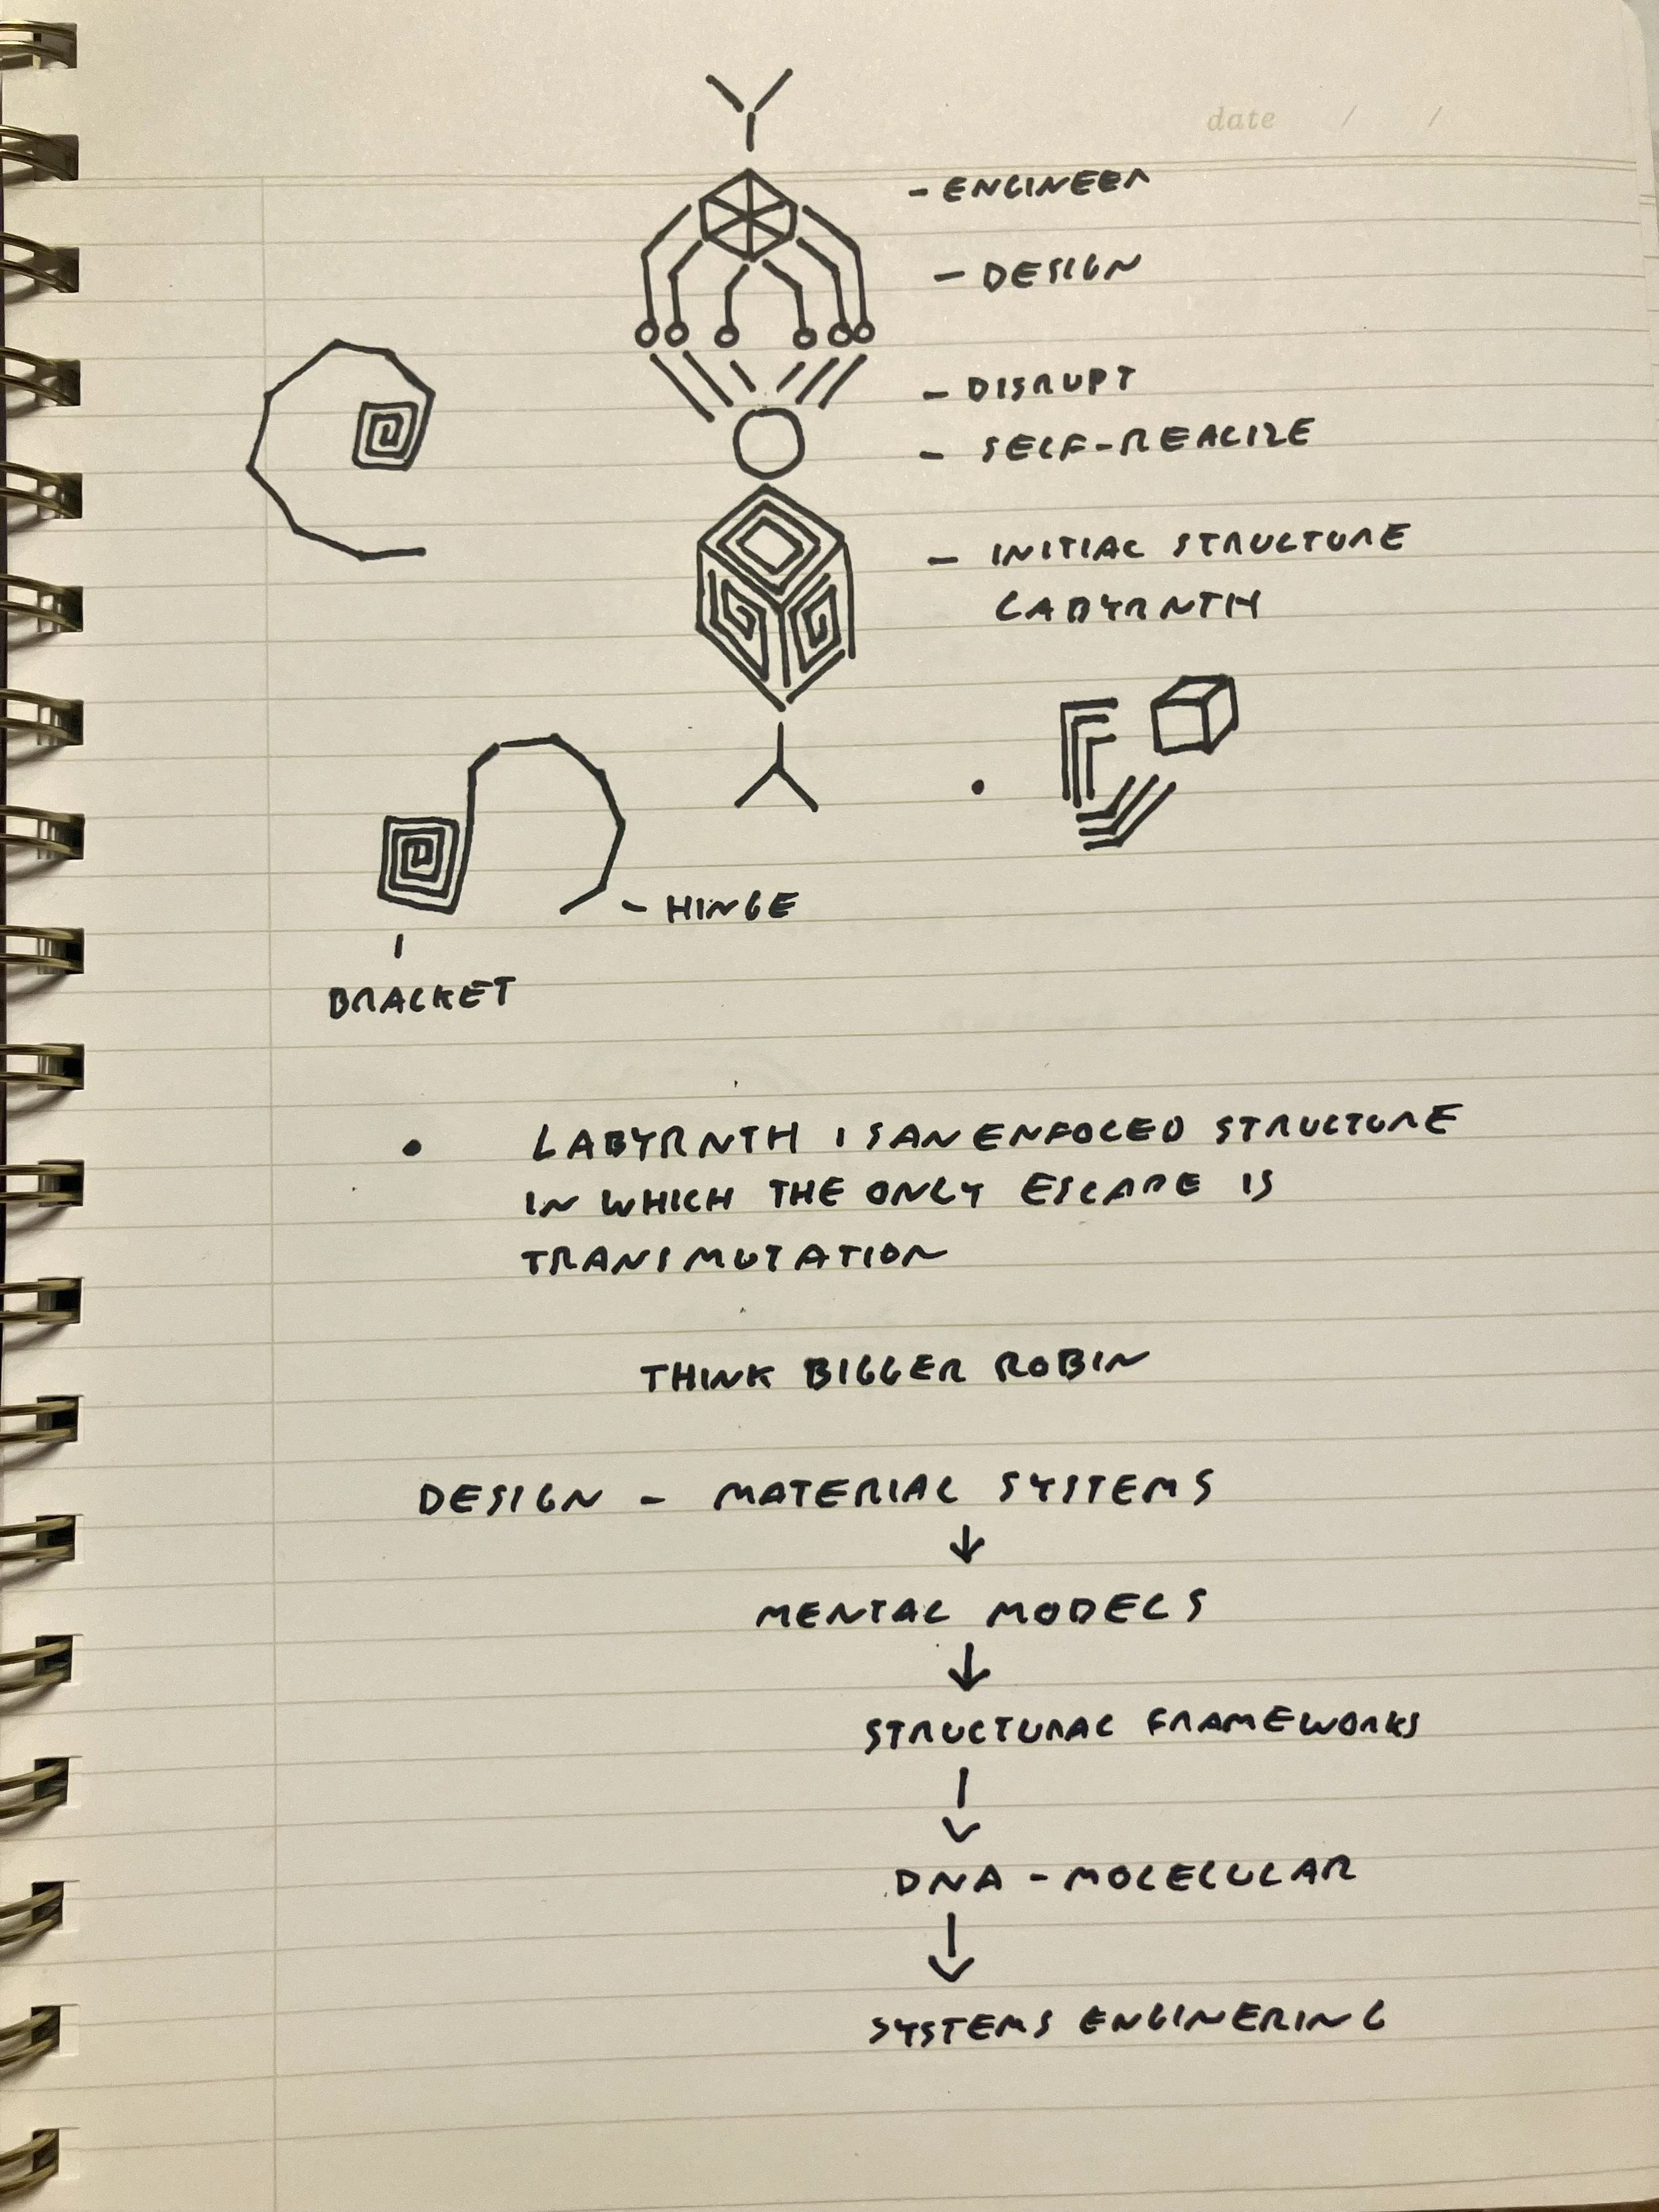 date / /
- ENGINEER
- DESIGN
- DISRUPT
- SELF-REALIZE
- INITIAL STRUCTURE
LABYRNTH
- HINGE
BRACKET
• LABYRNTH IS AN ENFOCED STRUCTURE
IN WHICH THE ONLY ESCAPE IS
TRANSMUTATION
THINK BIGGER ROBIN
DESIGN - MATERIAL SYSTEMS
↓
MENTAL MODELS
↓
STRUCTURAL FRAMEWORKS
↓
DNA - MOLECULAR
↓
SYSTEMS ENGINERING